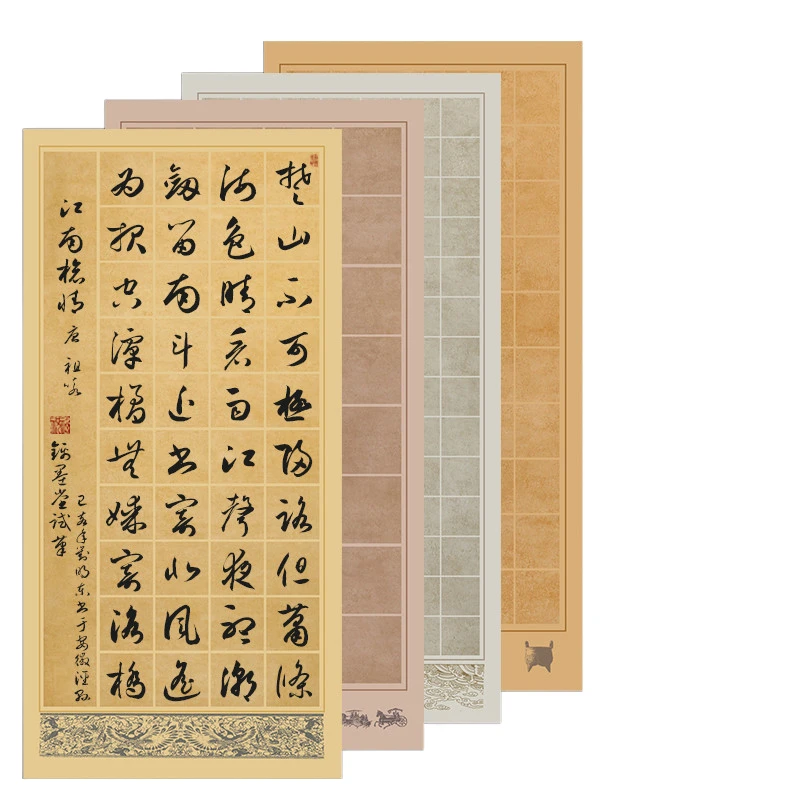 楚山不可極歸路但蕭條
海色晴看雨江聲夜聽潮
劍留南斗近书寄北風遙
为报空潭橘無媒寄洛橋
江南旅情 唐 祖咏
墨堂試筆
己亥年劉明东书于安徽涇縣